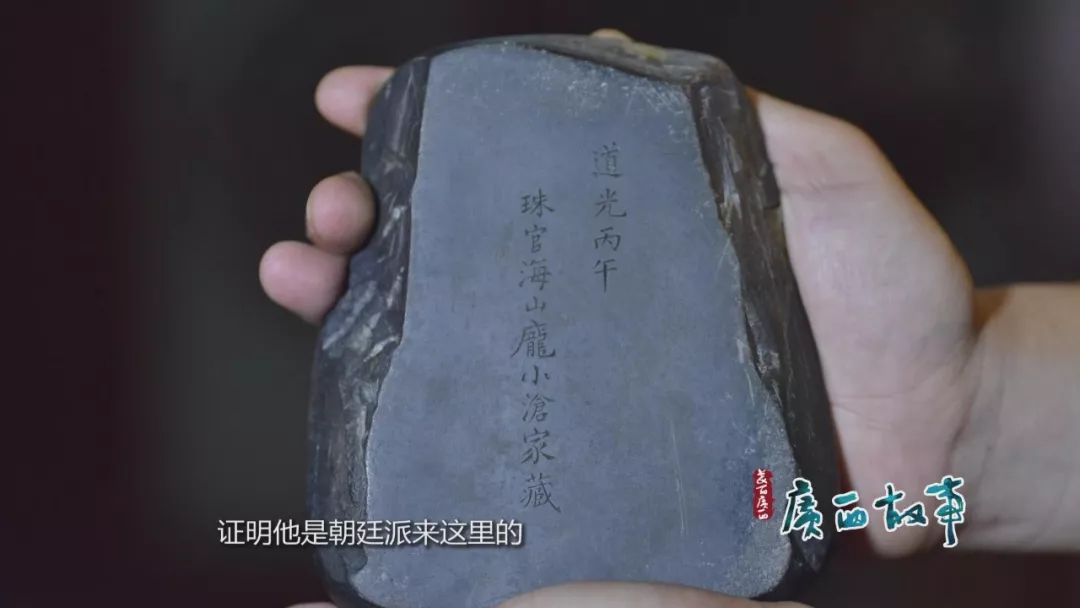 道光丙午
珠官海山龐小滄家藏
证明他是朝廷派来这里的
廣西故事